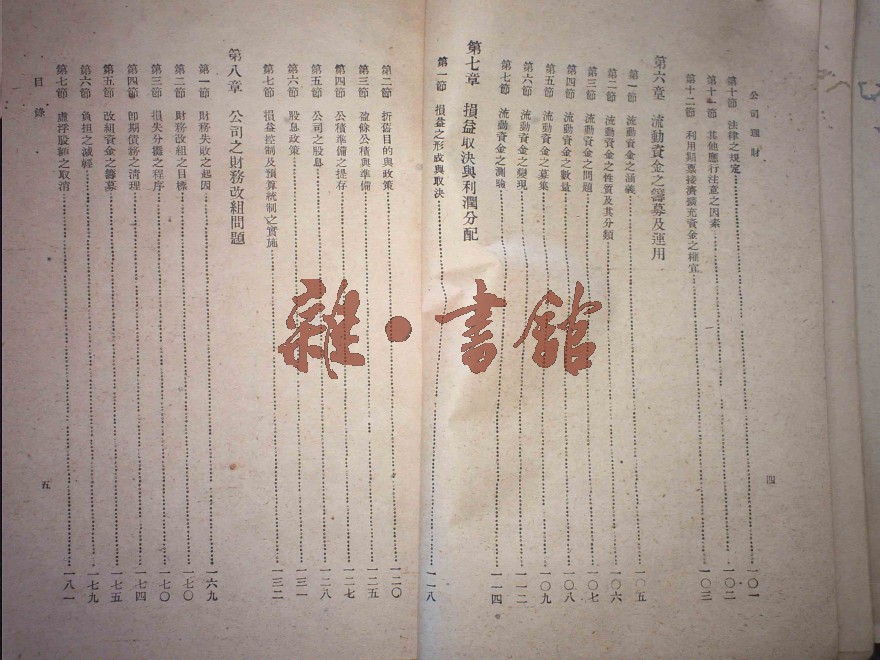 公司理財
第十節 法律之規定 一〇一
第十一節 其他應行注意之因素 一〇二
第十二節 利用期票接濟擴充資金之權宜 一〇三
第六章 流動資金之籌募及運用
第一節 流動資金之涵義 一〇五
第二節 流動資金之性質及其分類 一〇六
第三節 流動資金之問題 一〇七
第四節 流動資金之數量 一〇八
第五節 流動資金之募集 一〇九
第六節 流動資金之變現 一一二
第七節 流動資金之測驗 一一四
第七章 損益取決與利潤分配
第一節 損益之形成與取決 一一八
四
第二節 折舊目的與政策 一二〇
第三節 盈餘公積與準備 一二五
第四節 公積準備之提存 一二七
第五節 公司之股息 一二八
第六節 股息政策 一三一
第七節 損益控制及預算統制之實施 一三二
第八章 公司之財務改組問題
第一節 財務失敗之起因 一六九
第二節 財務改組之目標 一七〇
第三節 損失分攤之程序 一七〇
第四節 即期債務之清理 一七四
第五節 改組資金之籌募 一七五
第六節 負担之減輕 一七九
第七節 虛浮股額之取消 一八一
目錄
五
雜·書館